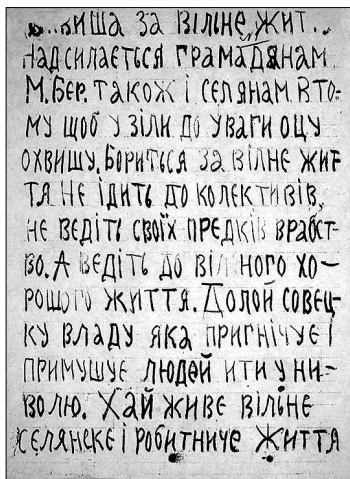 за вілне жит..
надсилається грамадянам
М.Бер. також і селянам. в то-
му щоб узіли до уваги оцу
охвишу. Бориться за вілне жит-
тя не ідить до колективів,
не ведіть своїх предків врабст-
во. А ведіть до вілного хо-
рошого життя. Долой совец-
ку владу яка пригнічує і
примушує людей ити у ни-
волю. Хай живе вільне
селянске і робитниче життя